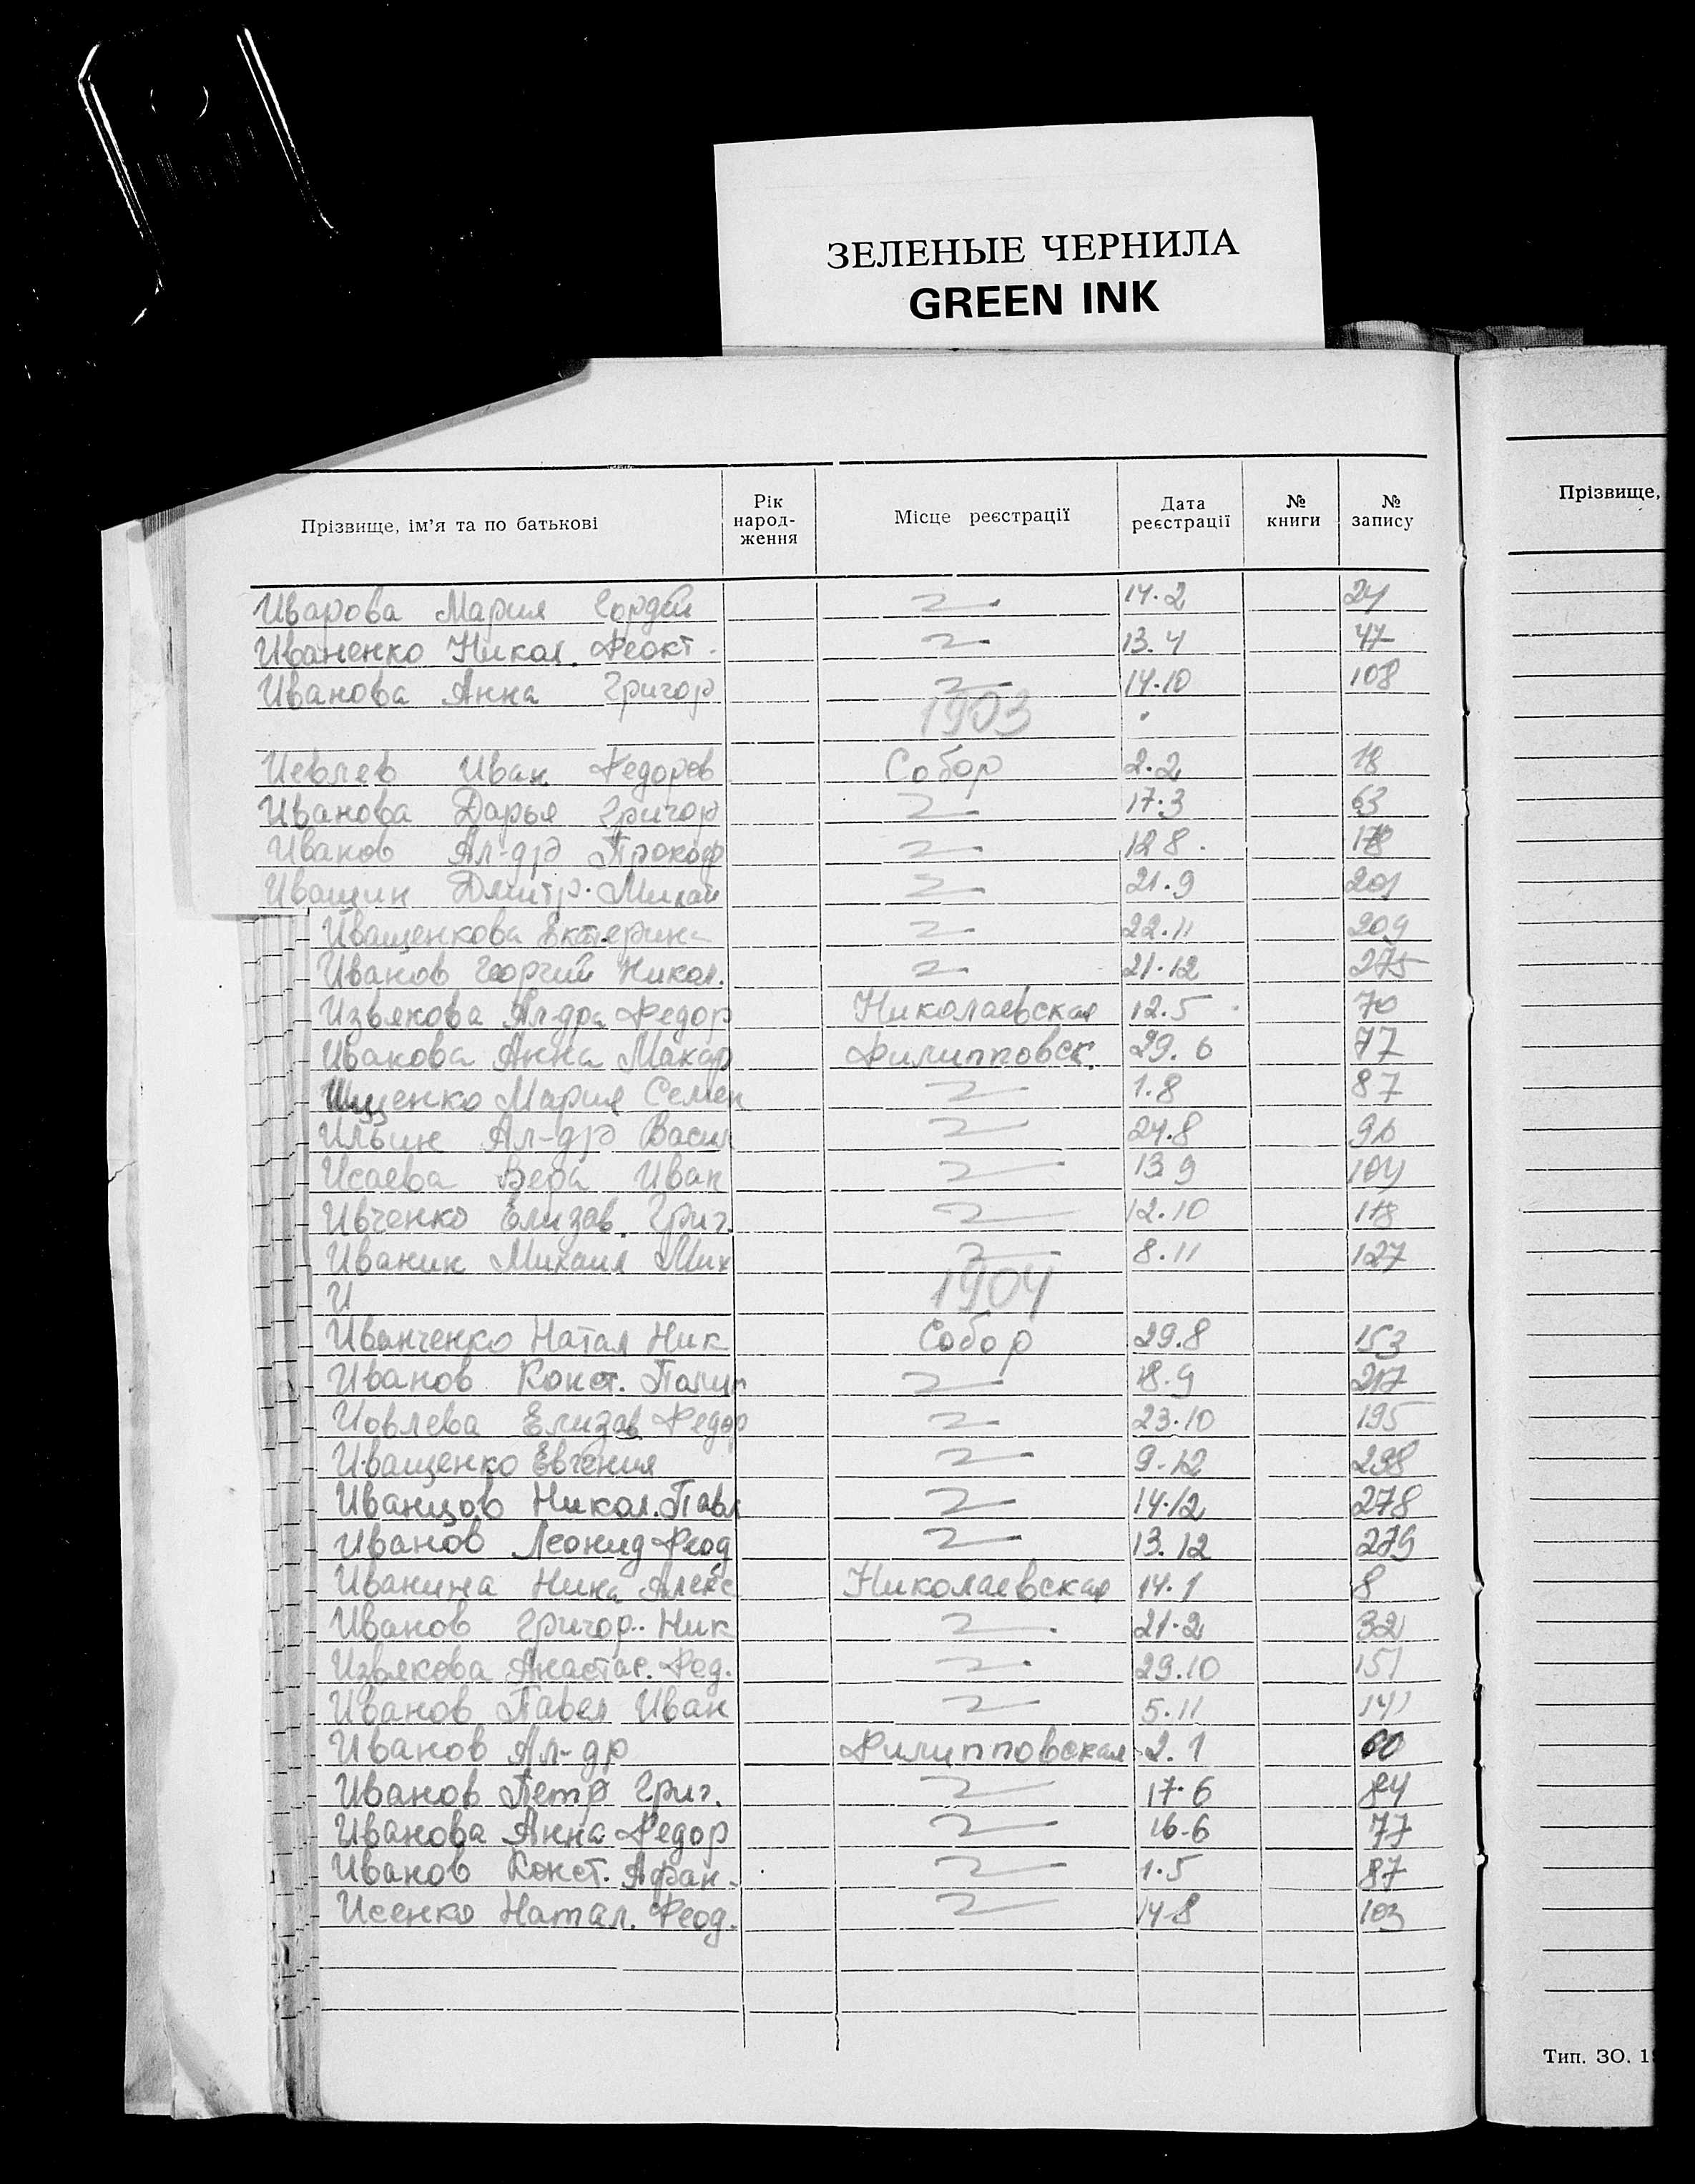 ЗЕЛЕНЫЕ ЧЕРНИЛА
GREEN INK
Прізвище, ім'я та по батькові Рік народ-ження Місце реєстрації Дата реєстрації № книги № запису
Прізвище,
Иварова Мария Гордей 14.2 24
Иваненко Никол. Феокт. 13.4 47
Иванова Анна Григор 14.10 108
1903
Иевлев Иван Федоров Собор 2.2 18
Иванова Дарья Григор 17.3 63
Иванов Ал-др Прокоф 12 8. 178
Иващин Дмитр. Михай 21.9 201
Иващенкова Екатерина 22.11 209
Иванов Георгий Никол. 21.12 275
Извякова Ал-дра Федор Николаевская 12.5 70
Ивакова Анна Макар Филипповск. 29.6 77
Ищенко Мария Семен 1.8 87
Ильин Ал-др Васил 24.8 96
Исаева Вера Иван 13 9 104
Ивченко Елизав. Григ. 12.10 118
Иваник Михаил Мих 8.11 127
И 1904
Иванченко Натал Ник Собор 29.8 153
Иванов Конст. Палип 18.9 217
Иовлева Елизав Федор 23.10 195
Иващенко Евгения 9.12 298
Иванцов Никол. Павл 14.12 278
Иванов Леонид Феод 13.12 279
Иванина Нина Алекс Николаевская 14.1 8
Иванов Григор. Ник 21.2 32
Извякова Анастас. Фед. 29.10 151
Иванов Павел Иван 5.11 141
Иванов Ал-др Филипповская 2.1 60
Иванов Петр Григ. 17.6 84
Иванова Анна Федор 16.6 77
Иванов Конст. Афан. 1.5 87
Исенко Натал. Феод. 14.8 103
Тип. ЗО. 1